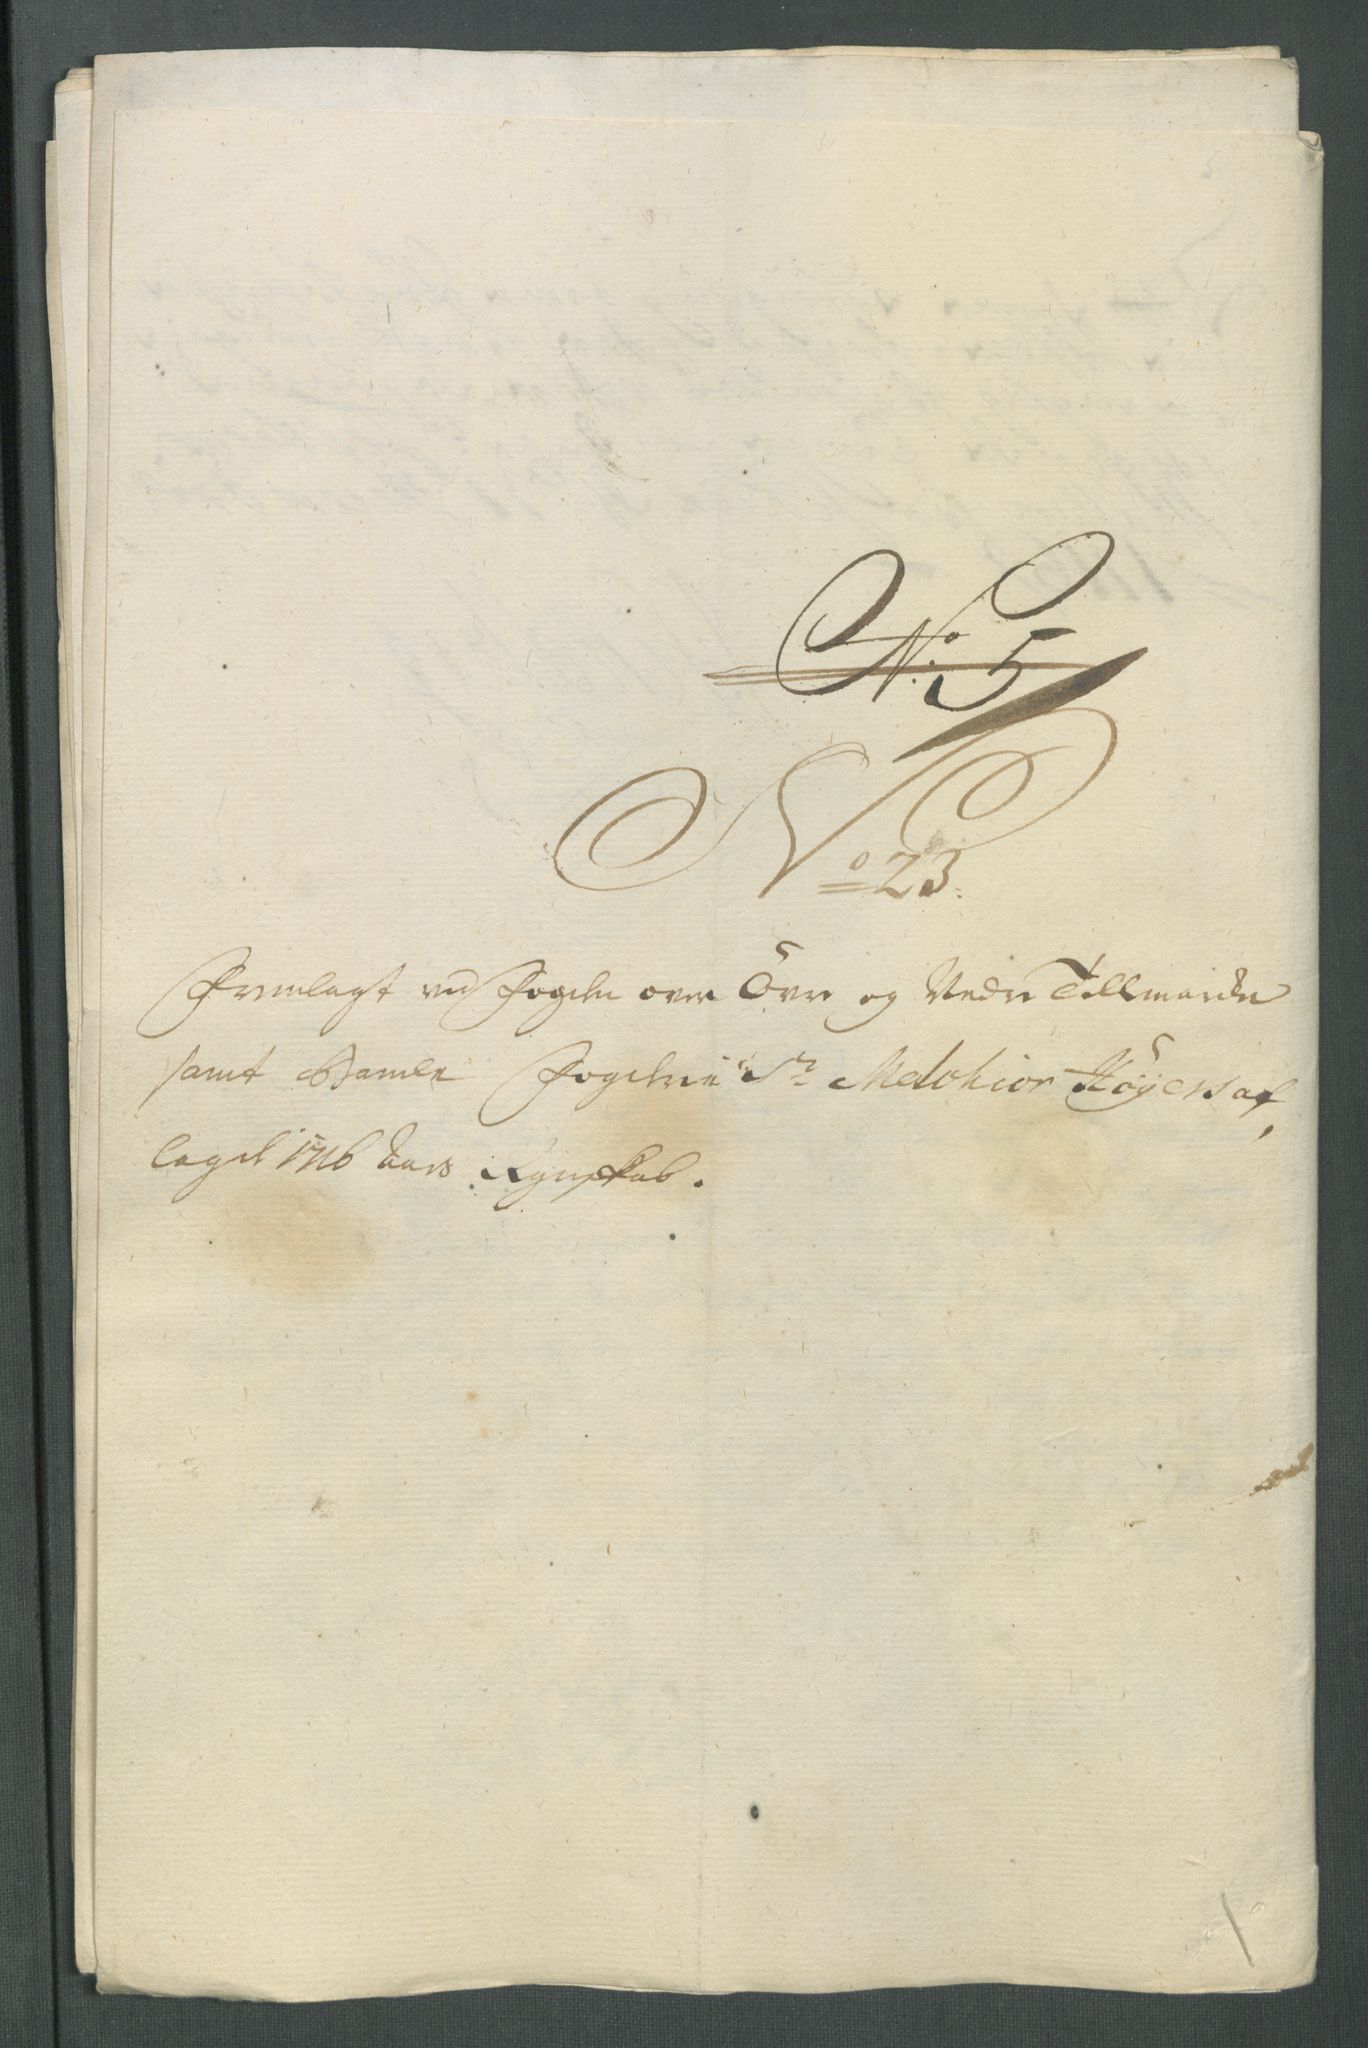 No. 5
No 23.
Fremlagt ved Fogden over Övre og Nedre Tellmarken
samt Bamle Fogderie Sr Melchior Höyers af,
lagde 1716 Aars Regnskab.